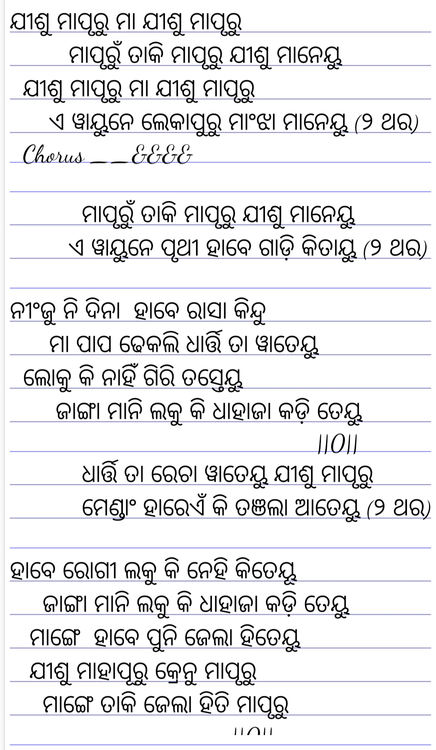 ଯୀଶୁ ମାପୃରୁ ମା ଯୀଶୁ ମାପୃରୁ
ମାପୃରୁଁ ତାକି ମାପୃରୁ ଯୀଶୁ ମାନେୟୁ
ଯୀଶୁ ମାପୃରୁ ମା ଯୀଶୁ ମାପୃରୁ
ଏ ୱାୟୁନେ ଲେକାପୁରୁ ମାଂଝା ମାନେୟୁ (୨ ଥର)
Chorus __ __&&&&
ମାପୃରୁଁ ତାକି ମାପୃରୁ ଯୀଶୁ ମାନେୟୁ
ଏ ୱାୟୁନେ ପୃଥୀ ହାବେ ଗାଡ଼ି କିତାୟୁ (୨ ଥର)
ନୀଂଜୁ ନି ଦିନା ହାବେ ରାସା କିନ୍ଦୁ
ମା ପାପ ଢେକଲି ଧାର୍ତ୍ତି ତା ୱାତେୟୁ
ଲୋକୁ କି ନାହିଁ ଗିରି ତସ୍ତେୟୁ
ଜାଙ୍ଗା ମାନି ଲକୁ କି ଧାହାଜା କଡ଼ି ତେୟୁ
||0||
ଧାର୍ତ୍ତି ତା ରେଚା ୱାତେୟୁ ଯୀଶୁ ମାପୃରୁ
ମେଣ୍ଡାଂ ହାରେଏଁ କି ତଞଲା ଆତେୟୁ (୨ ଥର)
ହାବେ ରୋଗୀ ଲକୁ କି ନେହି କିତେୟୁ
ଜାଙ୍ଗା ମାନି ଲକୁ କି ଧାହାଜା କଡ଼ି ତେୟୁ
ମାଙ୍ଗେ ହାବେ ପୁନି ଜେଲା ହିତେୟୁ
ଯୀଶୁ ମାହାପୂରୁ କ୍ରେନୁ ମାପୃରୁ
ମାଙ୍ଗେ ତାକି ଜେଲା ହିତି ମାପୃରୁ
||0||